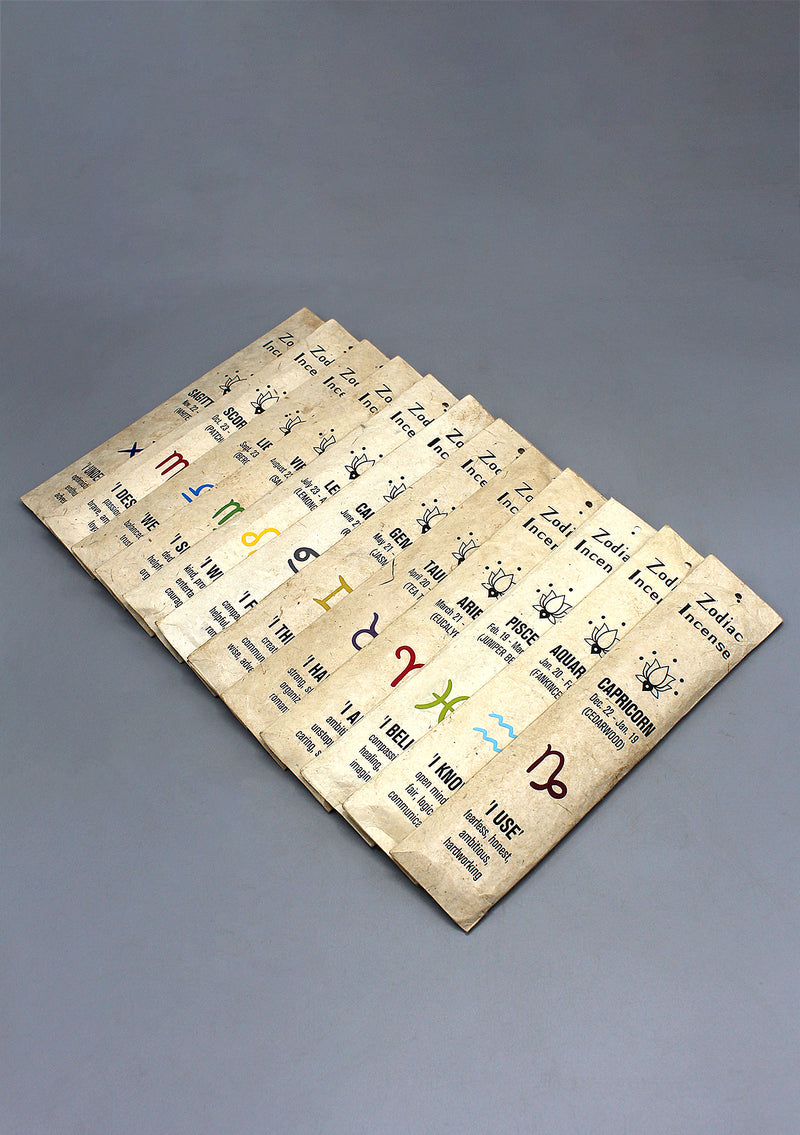 Zodiac
Incense
CAPRICORN
Dec. 22 - Jan. 19
(CEDARWOOD)
'I USE'
fearless, honest,
ambitious,
hardworking
Zodia
Incen
AQUAR
Jan. 20 - F
(FANKINCE
'I KNO
open mind
fair, logic
communica
Zodia
Incen
PISCE
Feb. 19 - Mar
(JUNIPER BE
'I BELI
compassi
healing,
imagin
Zodi
Incer
ARIE
March 21
(EUCALY
'I A
ambiti
unstop
caring, s
TAU
April 20 -
(TEA
'I HA
strong, s
organiz
roman
Zod
Ince
GEN
May 21 -
(JASM
'I TH
creat
commun
wise, adve
Zo
Ince
CAI
June 2
'I F
compa
helpful
rom
Zod
Ince
LE
July 23 - A
(LEMONG
'I W
kind, pro
enterta
courag
Zo
Inc
VIR
August 2
(SA
'I S
ded
helpf
org
Zo
Ince
LIE
Sept. 23
(BER
'WE
balance
trust
Zod
Ince
SCOR
Oct. 23 -
(PATCH
'I DES
passion
brave, am
loya
Zo
Inc
SAGITT
Nov. 22 -
(WHITE
'UNDE
optimist
enthu
adver